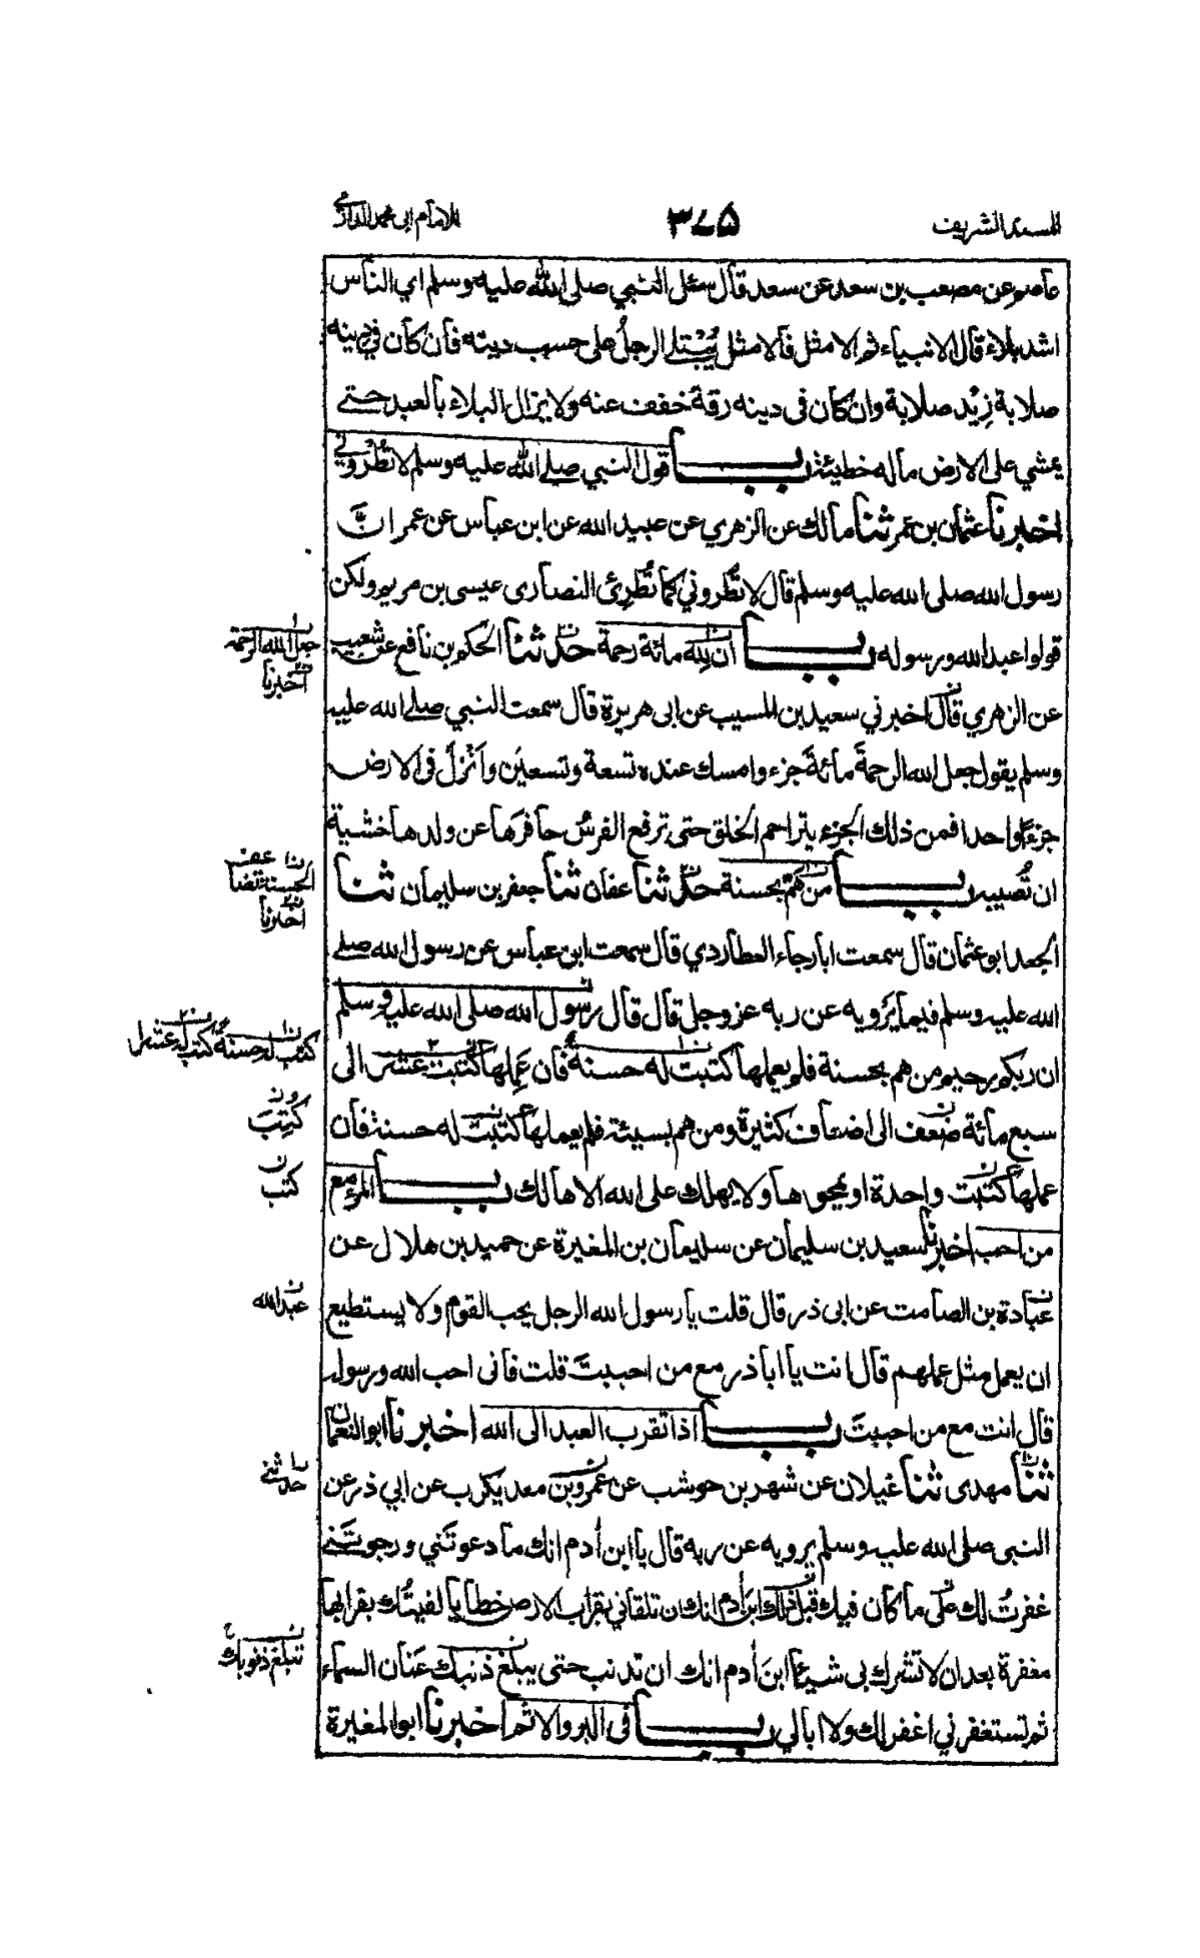 المسند الشريف
٣٧٥
للامام ابى محمد الدارمي
عاصم عن مصعب بن سعد عن سعد قال سئل النبي صلى الله عليه وسلم اي الناس
اشد بلاء قال الانبياء ثم الامثل فالامثل يُبْتلى الرجلُ على حسب دينه فان كان في دينه
صلابة زِيْد صلابة وان كان فى دينه رقة خفف عنه ولا يزال البلاء بالعبد حتى
يمشي على الارض ماله خطيئة باب قول النبي صلى الله عليه وسلم لا تُطْرُوني
اخبرنا عثمان بن عمر ثنا مالك عن الزهري عن عبيد الله عن ابن عباس عن عمر انَّ
رسول الله صلى الله عليه وسلم قال لا تُطْروني كما تُطْرِئ النصارى عيسى بن مريم ولكن
قولوا عبد الله ورسوله باب ان لله مائة رحمة حدثنا الحكم بن نافع عن شعيب
عن الزهري قال اخبرني سعيد بن المسيب عن ابى هريرة قال سمعت النبي صلى الله عليه
وسلم يقول جعل الله الرحمةَ مائةَ جزء وامسك عنده تسعة وتسعين وأنْزلَ فى الارض
جزءًا واحدا فمن ذلك الجزء يتراحم الخلق حتى ترفع الفرسُ حافرَها عن ولدها خشية
ان تُصيبه باب من همّ بحسنة حدّثنا عفان ثنا جعفر بن سليمان ثنا
الجعد ابو عثمان قال سمعت ابا رجاء العطاردي قال سمعت ابن عباس عن رسول الله صلى
الله عليه وسلم فيما يَرْويه عن ربه عز وجل قال قال رسول الله صلى الله عليه وسلم
ان ربكم رحيم من هم بحسنة فلم يعملها كتبت له حسنة فان عَمِلها كتبت عشرا الى
سبع مائة ضعف الى اضعاف كثيرة ومن هم بسيئة فلم يعملها كتبت له حسنة فان
عملها كتبت واحدة او يمحوها ولا يهلك على الله الا هالك باب المرء مع
من احب اخبرنا سعيد بن سليمان عن سليمان بن المغيرة عن حميد بن هلال عن
عبادة بن الصامت عن ابى ذر قال قلت يا رسول الله الرجل يحب القوم ولا يستطيع
ان يعمل مثل عملهم قال انت يا ابا ذر مع من احببتَ قلت فانى احب الله ورسوله
قال انت مع من احببتَ باب اذا تقرب العبد الى الله اخبرنا ابو النعمان
ثنا مهدى ثنا غيلان عن شهر بن حوشب عن عمرو بن معديكرب عن ابي ذر عن
النبى صلى الله عليه وسلم يرويه عن ربه قال يا ابن أدم انك ما دعوتَني ورجوتَني
غفرتُ لك على ما كان فيك قبل ذلك ابن أدم انك ان تلقاني بقراب الارض خطايا لقيتُك بقرابها
مغفرة بعد ان لا تشرك بى شيئا ابنَ أدم انك ان تذنب حتى يبلغ ذنبك عَنَان السماء
ثم تستغفرني اغفر لك ولا ابالي باب فى البر والاثم اخبرنا ابو المغيرة
جعل الله الرحمة
اخبرنا
الحسنة
اخبرنا
كتب له حسنة كتب له عشرا
كُتِبَ
كتب
عبد الله
حدثني
تبلغ ذنوبك